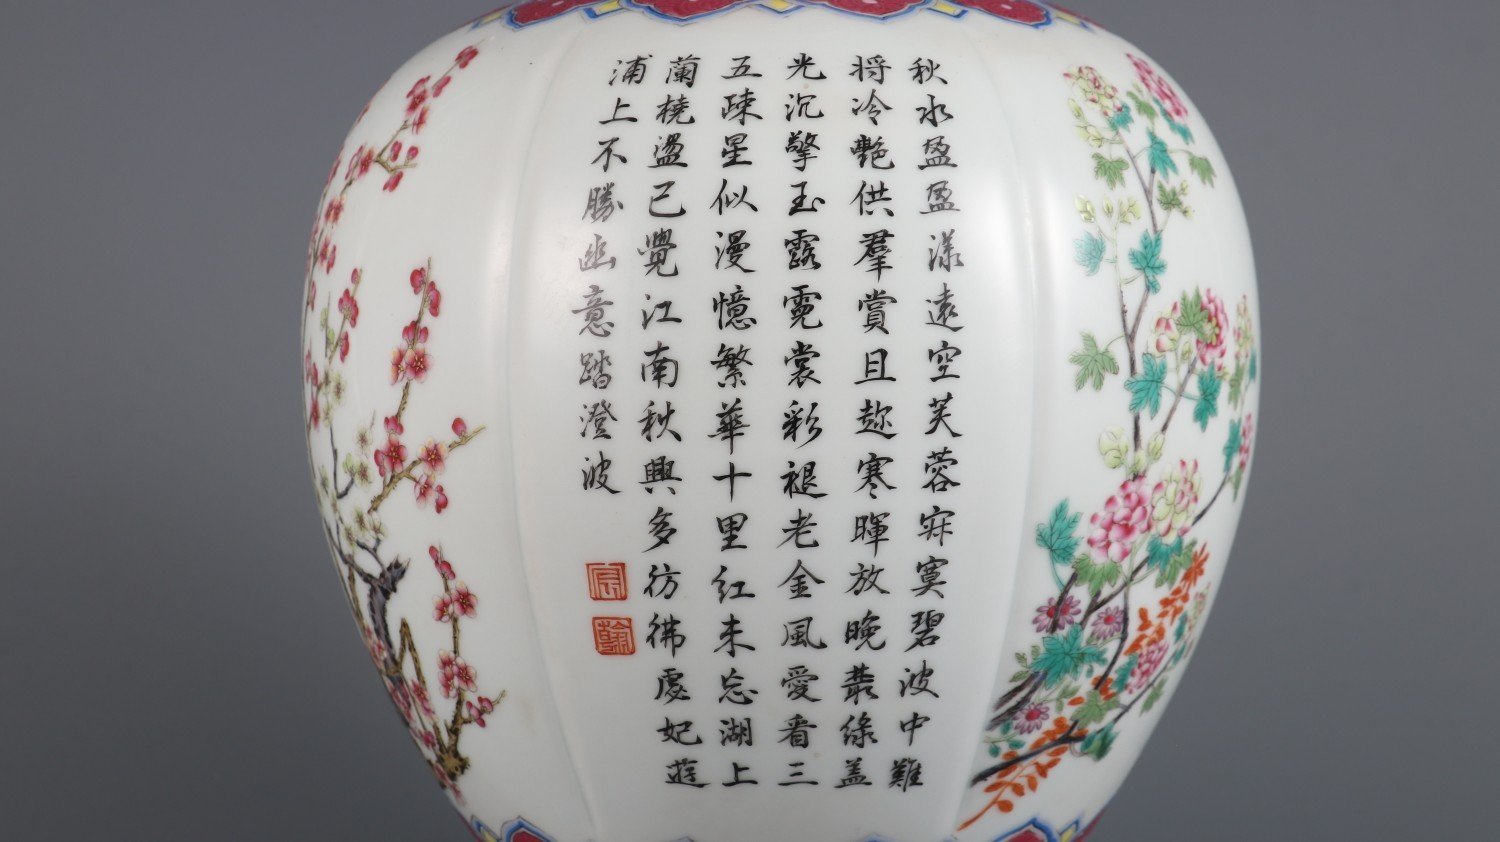 秋水盈盈漾遠空芙蓉寂寞碧波中難
將冷艷供羣賞且趂寒暉放晚叢綠盖
光沉擎玉露霓裳彩褪老金風愛看三
五疎星似漫憶繁華十里紅未忘湖上
蘭橈盪已覺江南秋興多彷彿處妃遊
浦上不勝幽意踏澄波
宸
翰